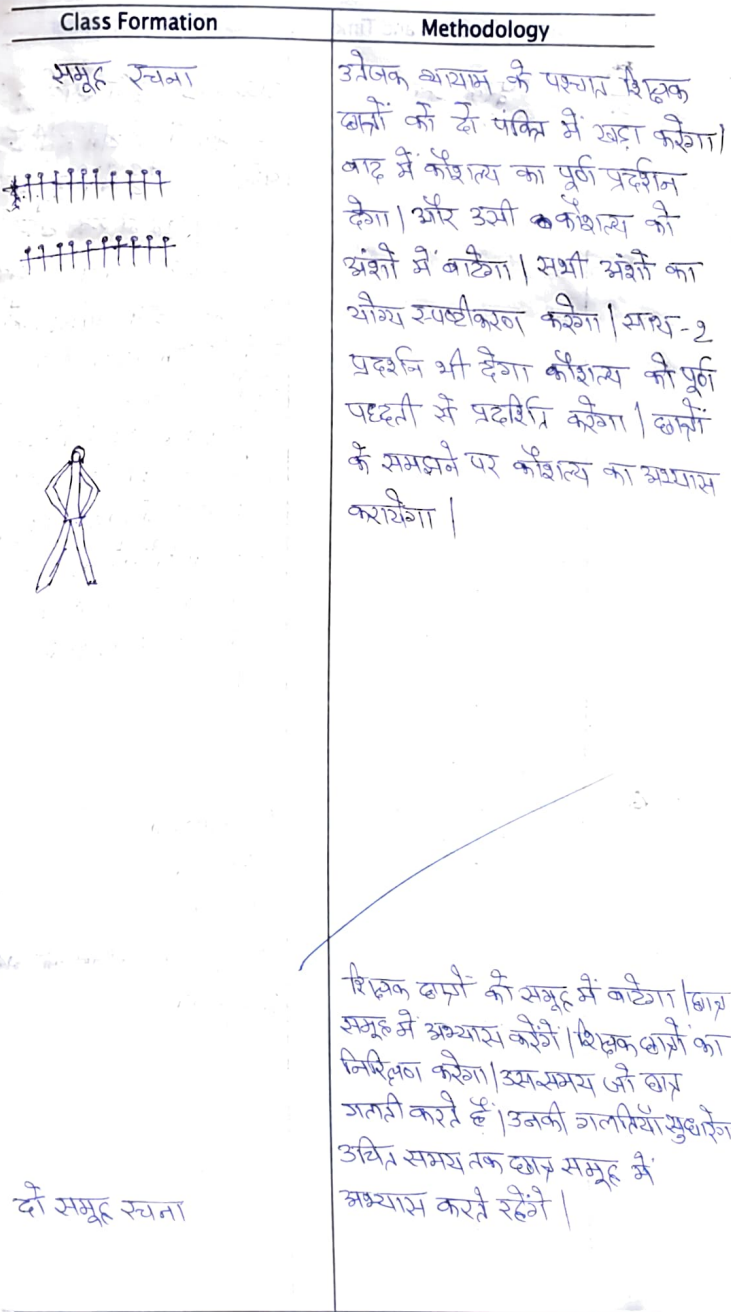 Class Formation
Methodology
समूह रचना
उत्तेजक व्यायाम के पश्चात शिक्षक
छात्रों को दो पंक्ति में खड़ा करेगा|
बाद में कौशल्य का पूर्ण प्रदर्शन
देगा| और उसी कौशल्य को
अंशो में बाटेगा| सभी अंशों का
योग्य स्पष्टीकरण करेगा| साथ-२
प्रदर्शन भी देगा कौशल्य को पूर्ण
पध्दती से प्रदर्शित करेगा| छात्रों
के समझने पर कौशल्य का अभ्यास
करायेगा|
शिक्षक छात्रों को समूह में बाटेगा|छात्र
समूह में अभ्यास करेंगे|शिक्षक छात्रों का
निरिक्षण करेगा|उस समय जो छात्र
गलती करते हैं|उनकी गलतियाँ सुधारेंगे
उचित समय तक छात्र समूह में
अभ्यास करते रहेंगे|
दो समूह रचना